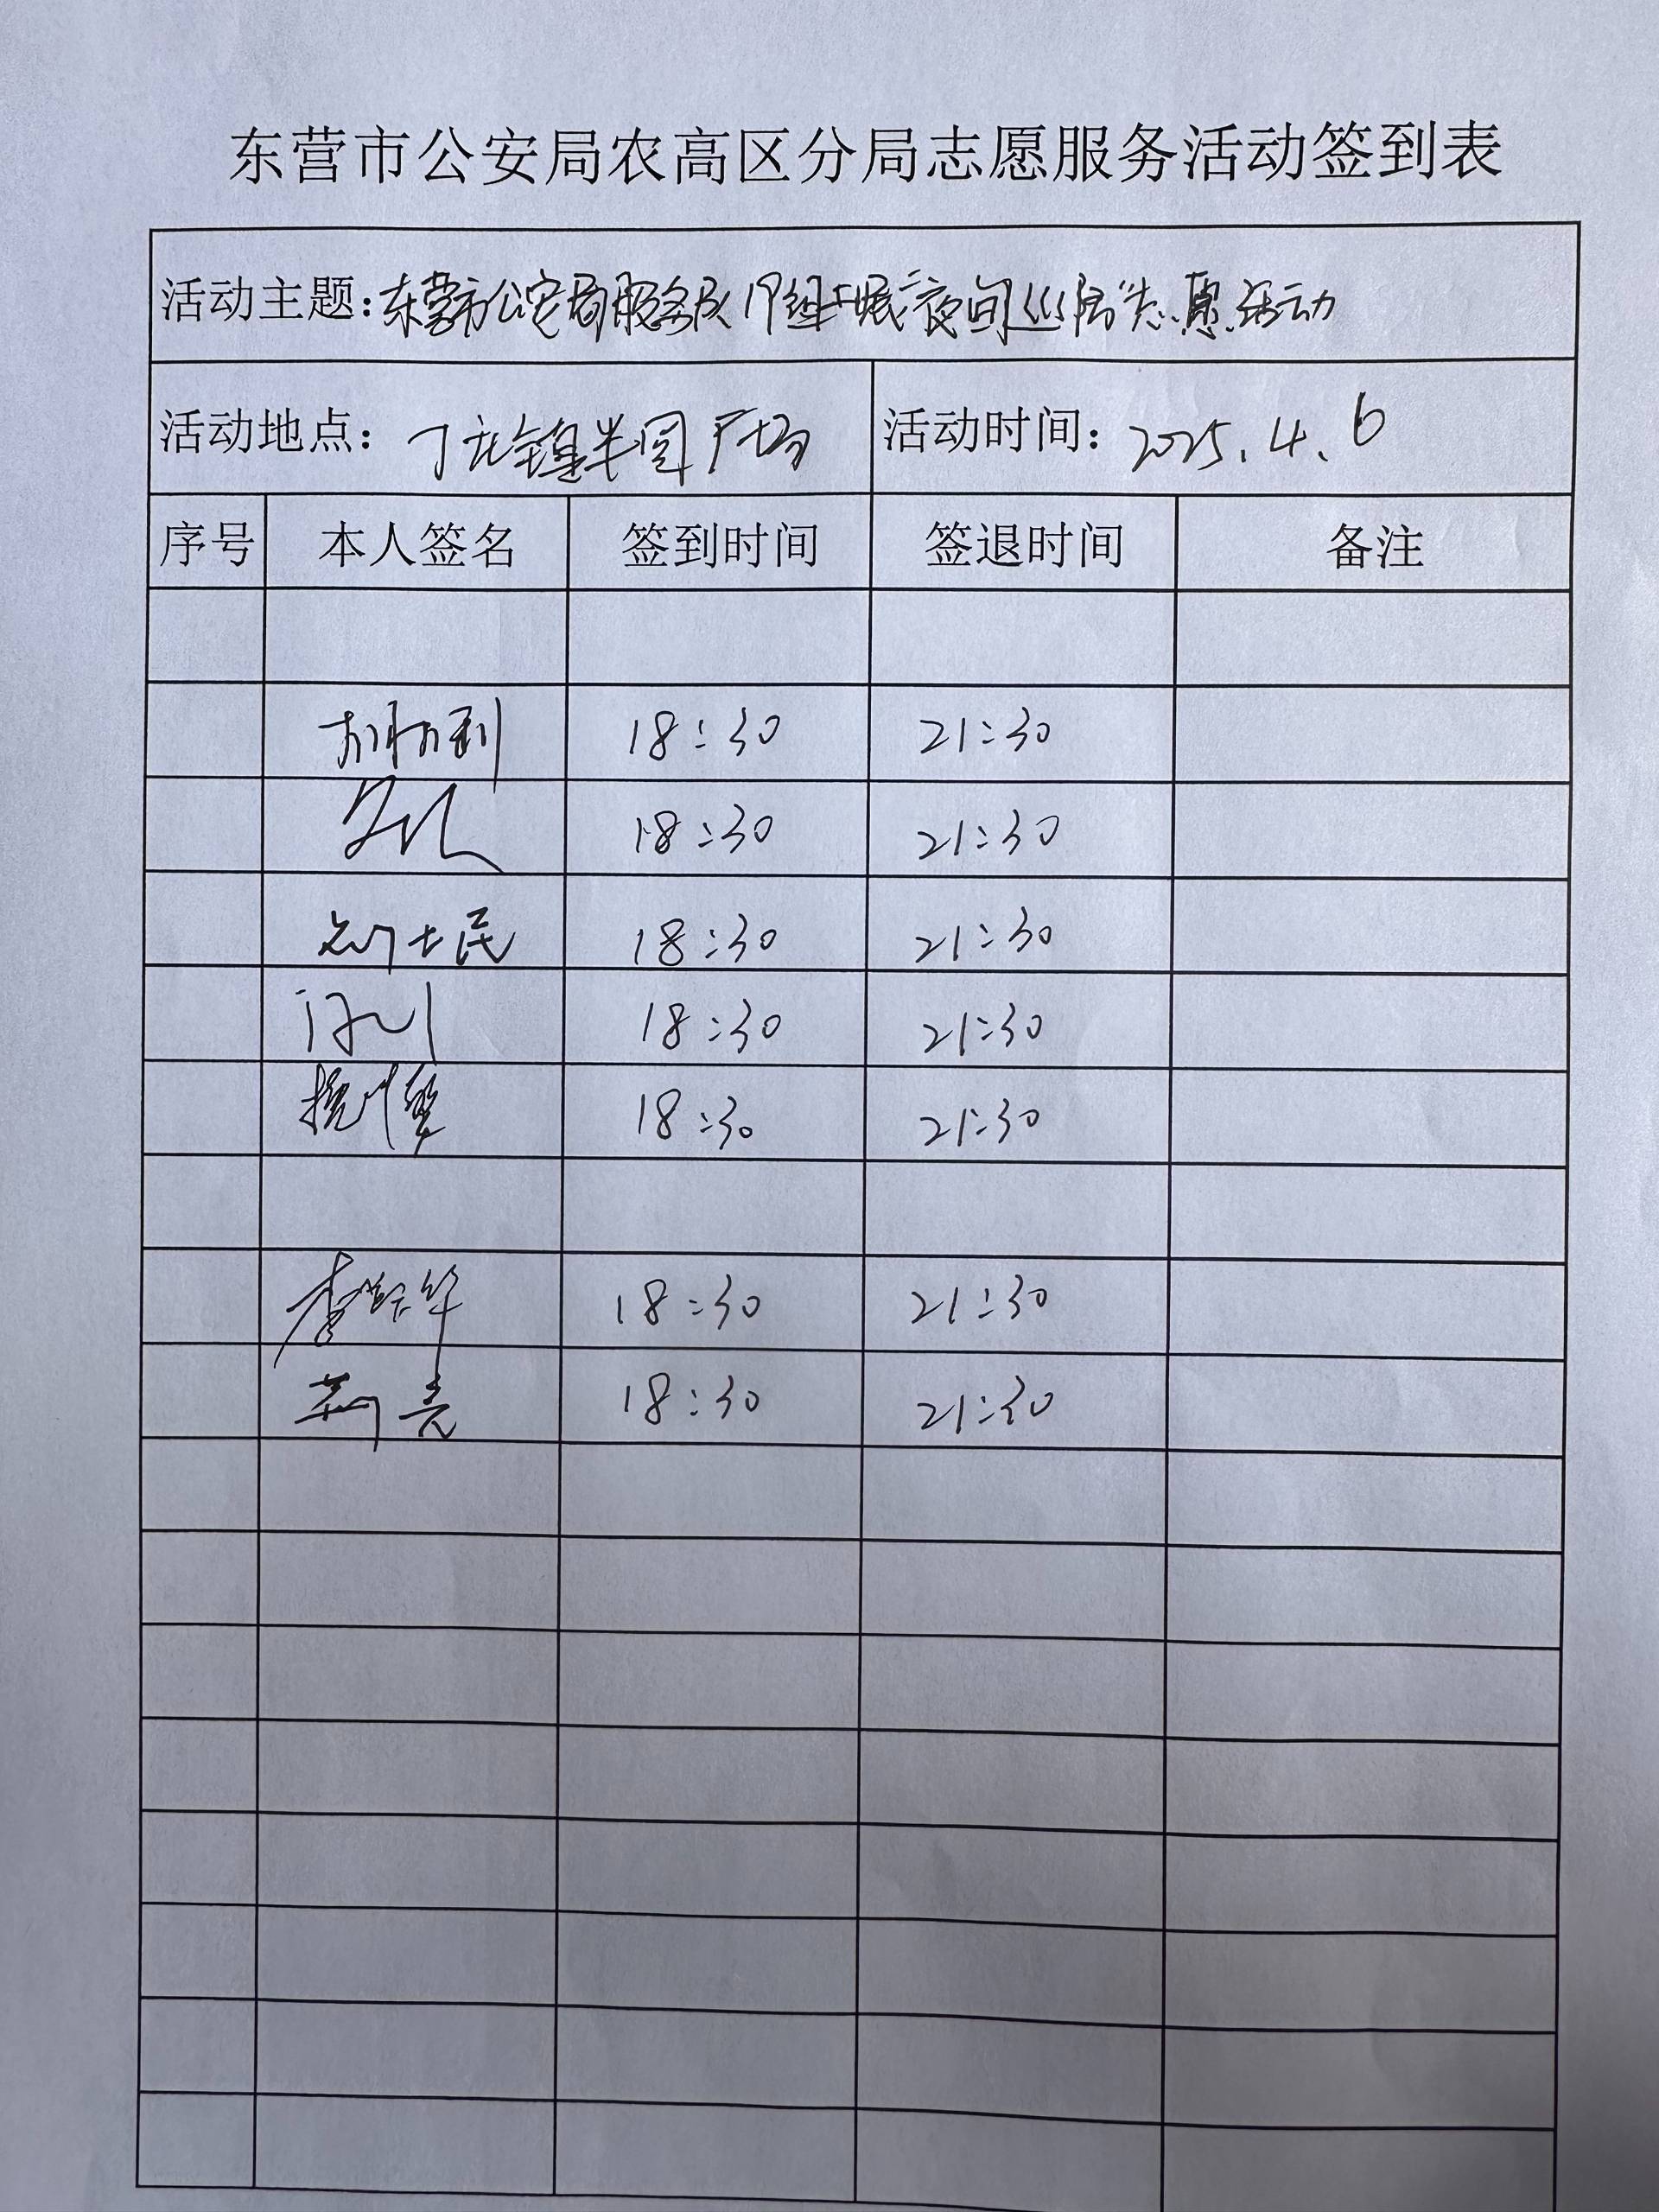 东营市公安局农高区分局志愿服务活动签到表
活动主题:东营市公安局服务队开展夜间巡防志愿活动
活动地点:丁庄镇半园广场 活动时间:2025.4.6
序号 本人签名 签到时间 签退时间 备注
18:30 21:30
18:30 21:30
士民 18:30 21:30
18:30 21:30
18:30 21:30
李 华 18:30 21:30
荆亮 18:30 21:30